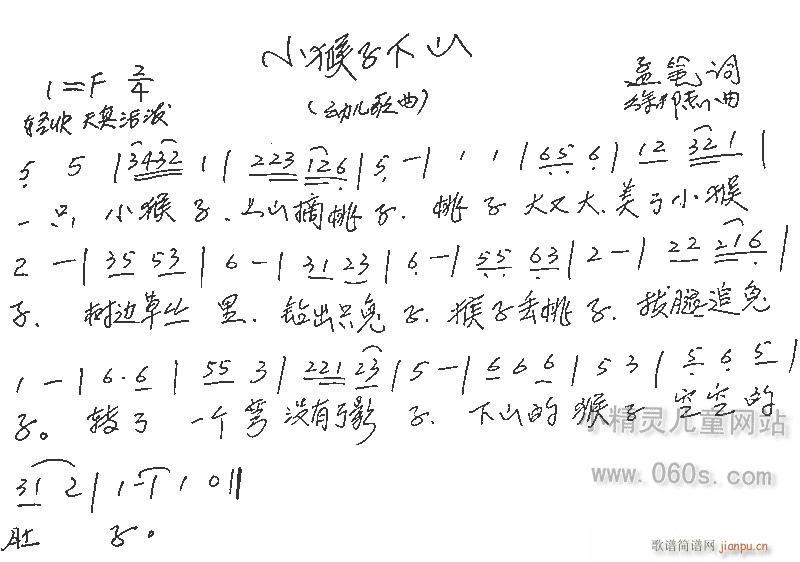 小猴子下山
1=F 2/4
孟 词
(幼儿歌曲)
轻快 天真活泼
曲
5 5 | 3432 1 | 223 126 | 5 - | 1 1 | 65 6 | 12 321 |
一只, 小猴子、上山摘桃子. 桃子 大又大、美了小猴
2 - | 35 53 | 6 - | 31 23 | 6 - | 55 63 | 2 - | 22 216 |
子、 树边草丛 里、钻出只兔 子、猴子丢桃子、拔腿追兔
1 - | 6·6 | 55 3 | 221 23 | 5 - | 66 6 | 53 | 5 6 5 |
子。转了 一个弯 没有了影 子、下山的猴子 空空的
31 2 | 1 - | 1 0 ||
肚 子。
精灵儿童网站
www.060s.com
歌谱简谱网 jianpu.cn